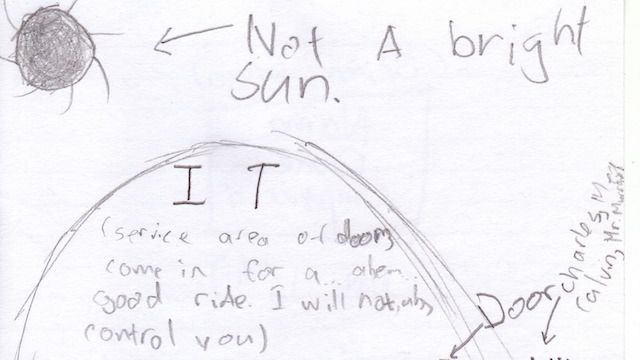 Not A bright
sun.
I T
(service area of doom,
come in for a... ahem...
good ride. I will not, uh,
control you)
Door
Charles,
Calvin, Mr. Murry